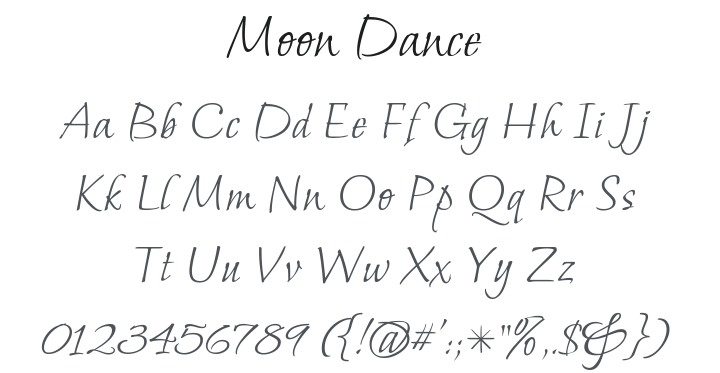 Moon Dance
Aa Bb Cc Dd Ee Ff Gg Hh Ii Jj
Kk Ll Mm Nn Oo Pp Qq Rr Ss
Tt Uu Vv Ww Xx Yy Zz
0123456789 ({!@#':;*"%,.$&})